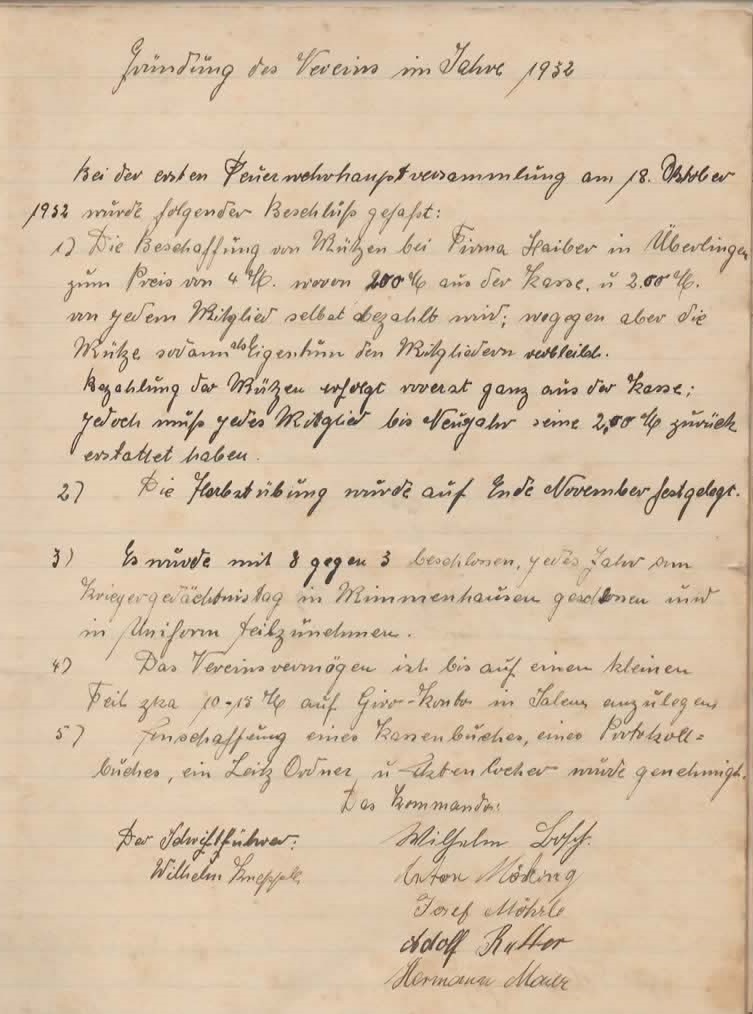 Gründung des Vereins im Jahre 1932
Bei der ersten Feuerwehrhauptversammlung am 18. Oktober
1932 wurde folgender Beschluß gefasst:
1) Die Beschaffung von Mützen bei Firma Haiber in Überlingen
zum Preis von 4 M. wovon 200 M aus der Kasse, u 2.00 M.
von jedem Mitglied selbst bezahlt wird; wogegen aber die
Mütze sodann als Eigentum den Mitgliedern verbleibt.
Bezahlung der Mützen erfolgt vorerst ganz aus der Kasse;
jedoch muß jedes Mitglied bis Neujahr seine 2,00 M zurück
erstattet haben.
2) Die Herbstübung wurde auf Ende November festgelegt.
3) Es wurde mit 8 gegen 3 beschlossen, jedes Jahr am
Kriegergedächtnistag in Mimmenhausen geschlossen und
in Uniform teilzunehmen.
4) Das Vereinsvermögen ist bis auf einen kleinen
Teil zka 10-15 M auf Giro-Konto in Salem anzulegen
5) Anschaffung eines Kassenbuches, eines Protokoll=
buches, ein Leitz Ordner, u Aktenlocher wurde genehmigt.
Das Kommando:
Der Schriftführer: Wilhelm Bosch.
Wilhelm Anton
Josef Möhrle
Adolf
Hermann Maier